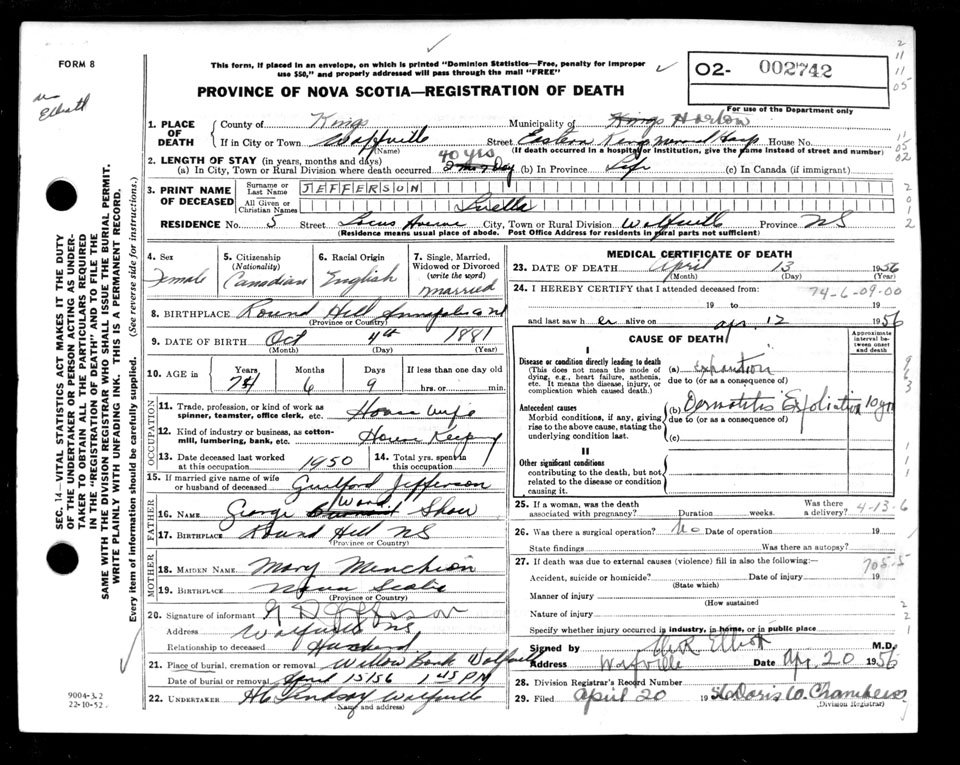 FORM 8
This form, if placed in an envelope, on which is printed "Dominion Statistics—Free, penalty for improper
use $50," and properly addressed will pass through the mail "FREE"
O2- 002742
PROVINCE OF NOVA SCOTIA—REGISTRATION OF DEATH
For use of the Department only
1. PLACE OF DEATH
County of Kings Municipality of Kings Horton
If in City or Town Wolfville Street Eastern Kings Mem Hosp House No.
(Name) (If death occurred in a hospital or institution, give the name instead of street and number)
2. LENGTH OF STAY (in years, months and days)
(a) In City, Town or Rural Division where death occurred 40 yrs (b) In Province Life (c) In Canada (if immigrant)
3. PRINT NAME OF DECEASED
Surname or Last Name JEFFERSON
All Given or Christian Names Luella
RESIDENCE No. 5 Street City, Town or Rural Division Wolfville Province NS
(Residence means usual place of abode. Post Office Address for residents in rural parts not sufficient)
4. Sex Female
5. Citizenship (Nationality) Canadian
6. Racial Origin English
7. Single, Married, Widowed or Divorced (write the word) Married
8. BIRTHPLACE Round Hill Annapolis Co NS
(Province or Country)
9. DATE OF BIRTH Oct 4th 1881
(Month) (Day) (Year)
10. AGE in Years 74 Months 6 Days 9 If less than one day old
hrs. or min.
OCCUPATION
11. Trade, profession, or kind of work as spinner, teamster, office clerk, etc. House wife
12. Kind of industry or business, as cotton-mill, lumbering, bank, etc. House Keeping
13. Date deceased last worked at this occupation 1950
14. Total yrs. spent in this occupation
15. If married give name of wife or husband of deceased Guilford Jefferson
FATHER
16. NAME George Ward Shaw
17. BIRTHPLACE Round Hill NS
(Province or Country)
MOTHER
18. MAIDEN NAME Mary Minchion
19. BIRTHPLACE Nova Scotia
(Province or Country)
20. Signature of informant G D Jefferson
Address Wolfville NS
Relationship to deceased Husband
21. Place of burial, cremation or removal Willow Bank Wolfville
Date of burial or removal April 15/56 1 45 PM
22. UNDERTAKER H C Lindsay Wolfville
(Name and address)
MEDICAL CERTIFICATE OF DEATH
23. DATE OF DEATH April 13 1956
(Month) (Day) (Year)
24. I HEREBY CERTIFY that I attended deceased from: 74-6-09-00
19 to 19
and last saw her alive on Apr. 12 1956
CAUSE OF DEATH
Approximate interval between onset and death
I
Disease or condition directly leading to death
(This does not mean the mode of dying, e.g., heart failure, asthenia, etc. It means the disease, injury, or complication which caused death.)
(a) exhaustion
due to (or as a consequence of)
Antecedent causes
Morbid conditions, if any, giving rise to the above cause, stating the underlying condition last.
(b) Dermatitis Exfoliativa 10 yrs
due to (or as a consequence of)
(c)
II
Other significant conditions
contributing to the death, but not related to the disease or condition causing it.
25. If a woman, was the death associated with pregnancy? Duration weeks. Was there a delivery? 4-13-6
26. Was there a surgical operation? No Date of operation 19
State findings Was there an autopsy?
27. If death was due to external causes (violence) fill in also the following:— 705-5
Accident, suicide or homicide? Date of injury 19
(State which)
Manner of injury
(How sustained
Nature of injury
Specify whether injury occurred in industry, in home, or in public place
Signed by Elliott M.D.
Address Wolfville Date Apr. 20 1956
28. Division Registrar's Record Number
29. Filed April 20 19 56 Doris W. Chambers
(Division Registrar)
SEC. 14—VITAL STATISTICS ACT MAKES IT THE DUTY
OF THE UNDERTAKER OR PERSON ACTING AS UNDERTAKER TO OBTAIN ALL THE PARTICULARS REQUIRED
IN THE "REGISTRATION OF DEATH" AND TO FILE THE
SAME WITH THE DIVISION REGISTRAR WHO SHALL ISSUE THE BURIAL PERMIT.
WRITE PLAINLY WITH UNFADING INK. THIS IS A PERMANENT RECORD.
Every item of information should be carefully supplied. (See reverse side for instructions.)
9004-3.2
22-10-52